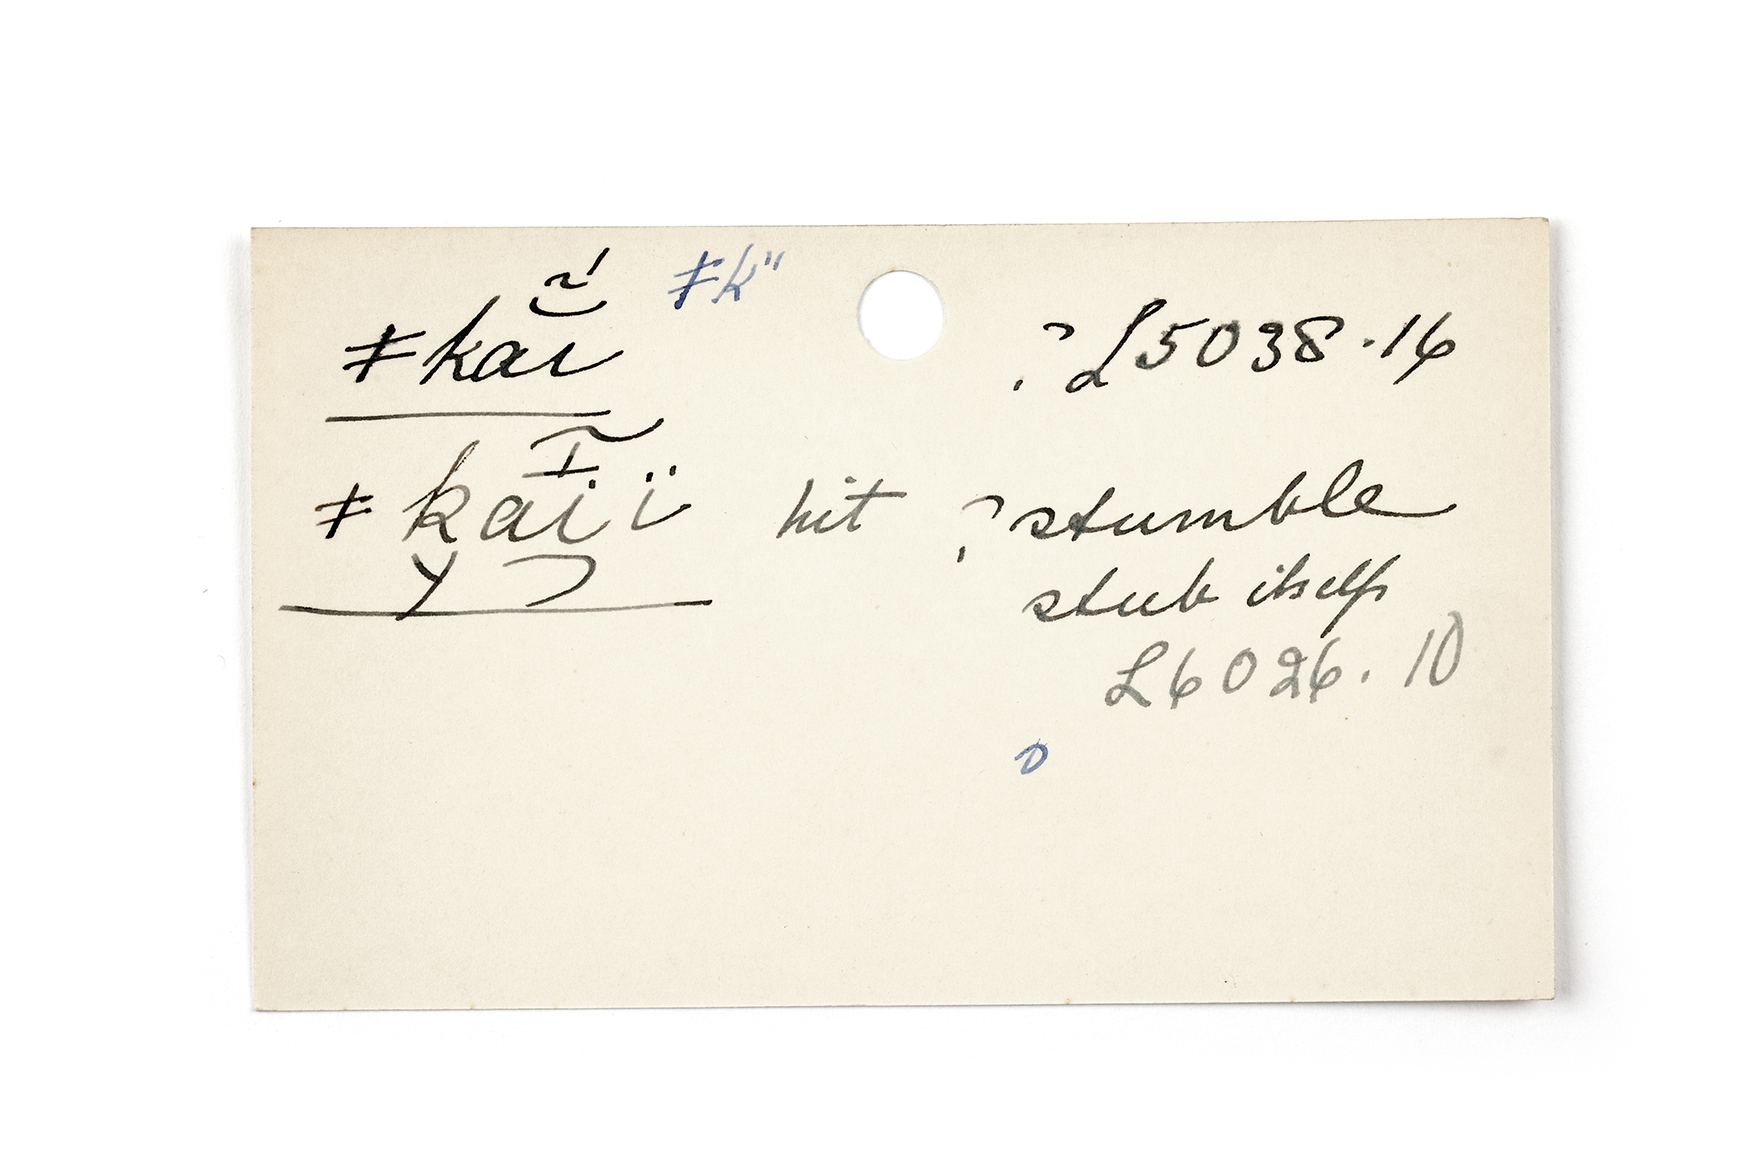 ǂkai ǂk" ? L5038.16
ǂkaiï hit ? stumble
stub itself
L6026.10